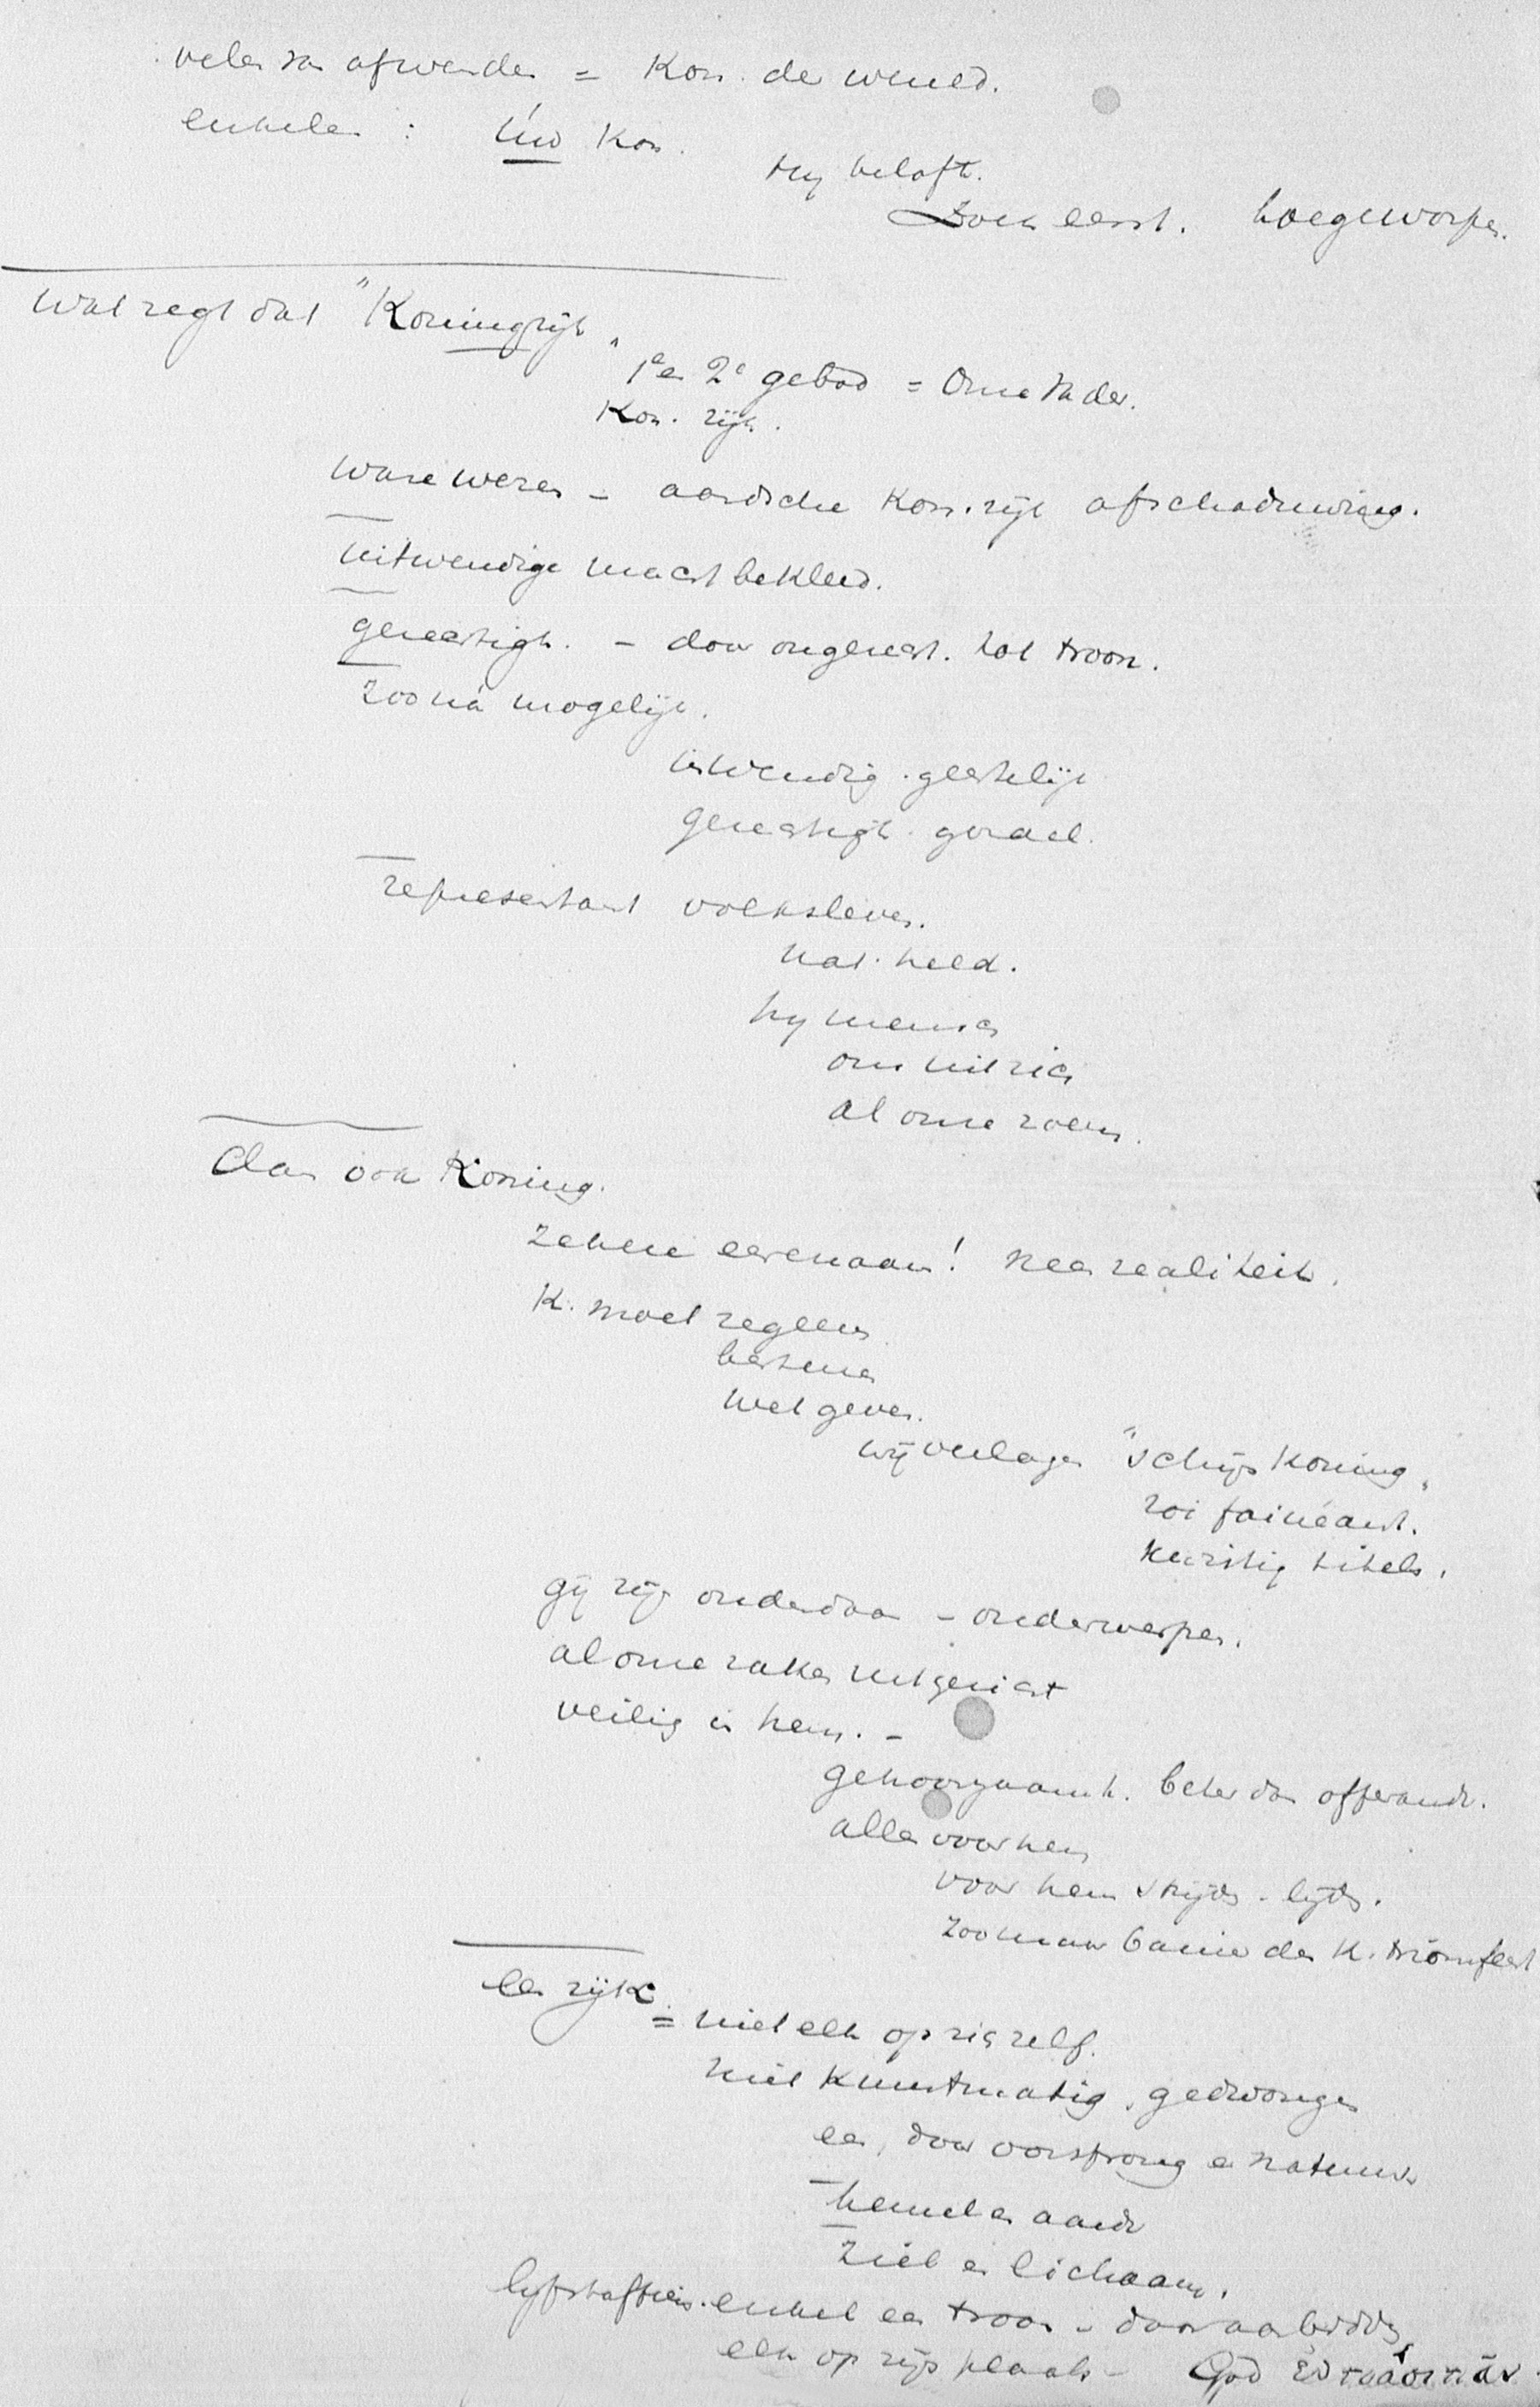 velen zn afwenden = Kon. der wereld.
enkelen : Úw Kon.
Hy belooft.
Zoek eerst. toegeworpen.
Wat zegt dat "Koningrijk"
1e en 2e gebod = Onze Vader.
Kon. rijk.
Ware wezen – aardsche Kon. rijk afschaduwing.
uitwendige macht bekleed.
gerechtigh. – door ongerecht. tot troon.
zoo ná mogelijk.
inwendig. geestelijk
gerechtigh. genade
representant volksleven.
nat. held.
hy mensch
ons uit zich
al onze roem.
dan ook Koning.
zekere eerenaam! neen realiteit.
K. moet regeeren
besturen
wet geven.
wij verlagen "schijn Koning"
roi fainéant.
keurstig titels.
gij zijn onderdaan – onderwerpen.
al onze zaken uitgericht
veilig in hem. –
gehoorzaamh. beter dan offerande.
alles voor hem
voor hem strijden – lijden.
zoo maar banier des K. triomfeert
een rijk
= niet elk op zich zelf.
niet kunstmatig, gedwongen
een, door oorsprong en natuur
hemel en aarde
ziel en lichaam.
enkel een troon – daar aanbidden
elk op zijn plaats – God